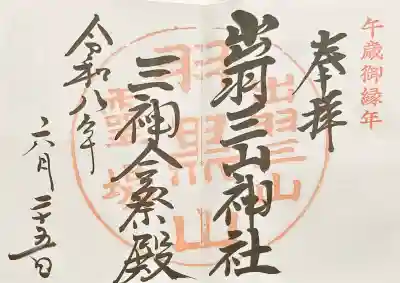 午歳御縁年
奉拝
出羽三山神社
三神合祭殿
令和八年
六月二十五日